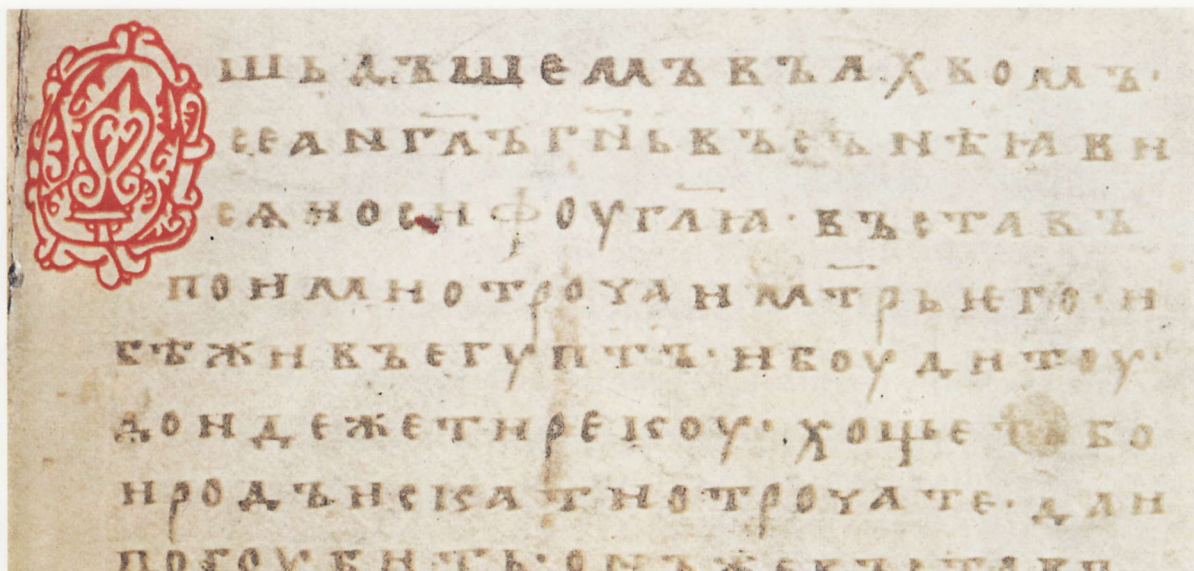 Ошьдъшемъ вълхвомъ·
се англъ гнь въ сънѣ ꙗви
сѧ иосифоу глꙗ· въставъ
поими отроча и мтрь ѥго· и
бѣжи въ егуптъ· и боуди тоу·
дондеже ти рекоу· хощеть бо
иродъ искати отрочате· да и
погоубить· онъ же въставъ